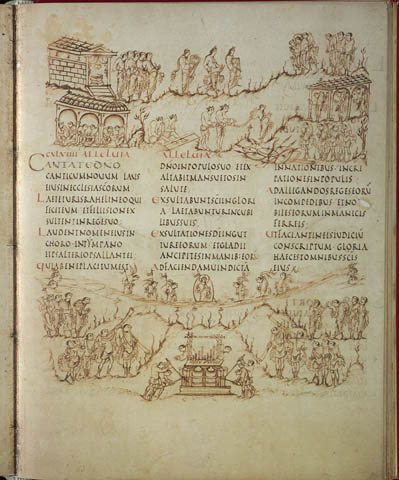 CXLVIIII ALLELUIA
CANTATE DNO
CANTICUM NOUUM LAUS
EIUS IN ECCLESIA SCORUM
LAETETUR ISRAHEL IN EO QUI
FECIT EUM ET FILII SION EX
SULTENT IN REGE SUO
LAUDENT NOMEN EIUS IN
CHORO IN TYMPANO
ET PSALTERIO PSALLANT EI
QUIA BENEPLACITUM EST
ALLELUIA
DNO IN POPULO SUO ET EX
ALTABIT MANSUETOS IN
SALUTE
EXSULTABUNT SCI IN GLORI
A LAETABUNTUR IN CUBI
LIBUS SUIS
EXSULTATIONES DI IN GUT
TURE EORUM ET GLADII
ANCIPITES IN MANIB· EOR·
AD FACIENDAM UINDICTA
IN NATIONIBUS INCRE
PATIONES IN POPULIS
AD ALLIGANDOS REGES EORU
IN COMPEDIBUS ET NO
BILES EORUM IN MANICIS
FERREIS
UT FACIANT IN EIS IUDICIU
CONSCRIPTUM GLORIA
HAEC EST OMNIBUS SCIS
EIUS